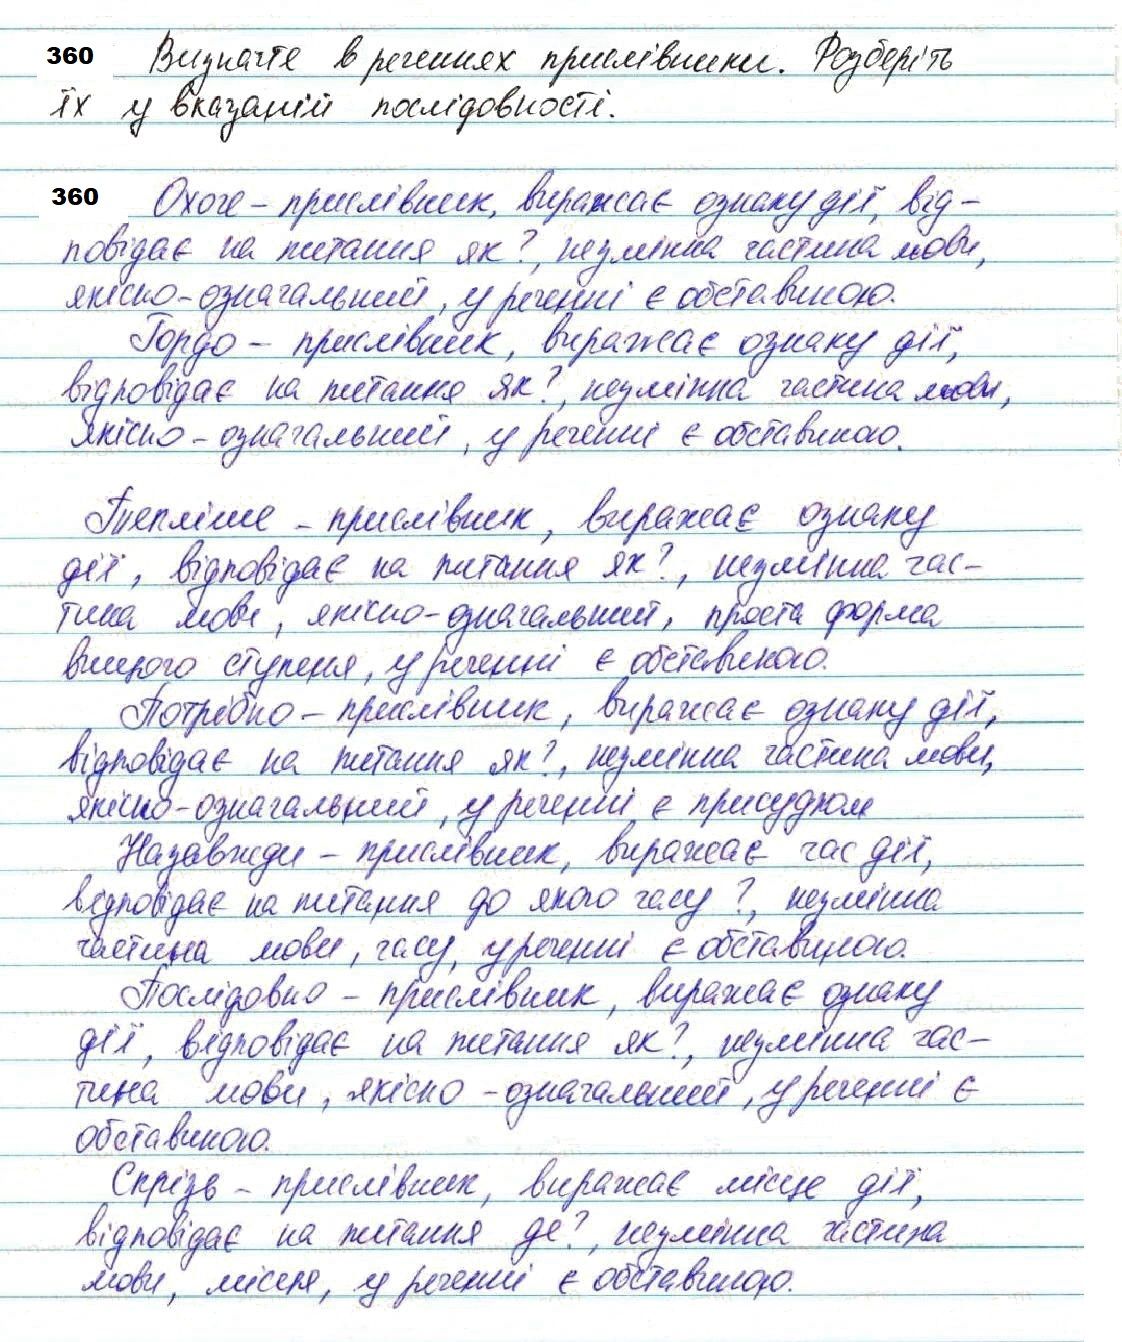 360 Визначте в реченнях прислівники. Розберіть
їх у вказаній послідовності.
360 Охоче – прислівник, виражає ознаку дії, від-
повідає на питання як?, незмінна частина мови,
якісно-означальний, у реченні є обставиною.
Гордо – прислівник, виражає ознаку дії,
відповідає на питання як?, незмінна частина мови,
якісно-означальний, у реченні є обставиною.
Тепліше – прислівник, виражає ознаку
дії, відповідає на питання як?, незмінна час-
тина мови, якісно-означальний, проста форма
вищого ступеня, у реченні є обставиною.
Потрібно – прислівник, виражає ознаку дії,
відповідає на питання як?, незмінна частина мови,
якісно-означальний, у реченні є присудком
Назавжди – прислівник, виражає час дії,
відповідає на питання до якого часу?, незмінна
частина мови, часу, у реченні є обставиною.
Послідовно – прислівник, виражає ознаку
дії, відповідає на питання як?, незмінна час-
тина мови, якісно-означальний, у реченні є
обставиною.
Скрізь – прислівник, виражає місце дії,
відповідає на питання де?, незмінна частина
мови, місця, у реченні є обставиною.